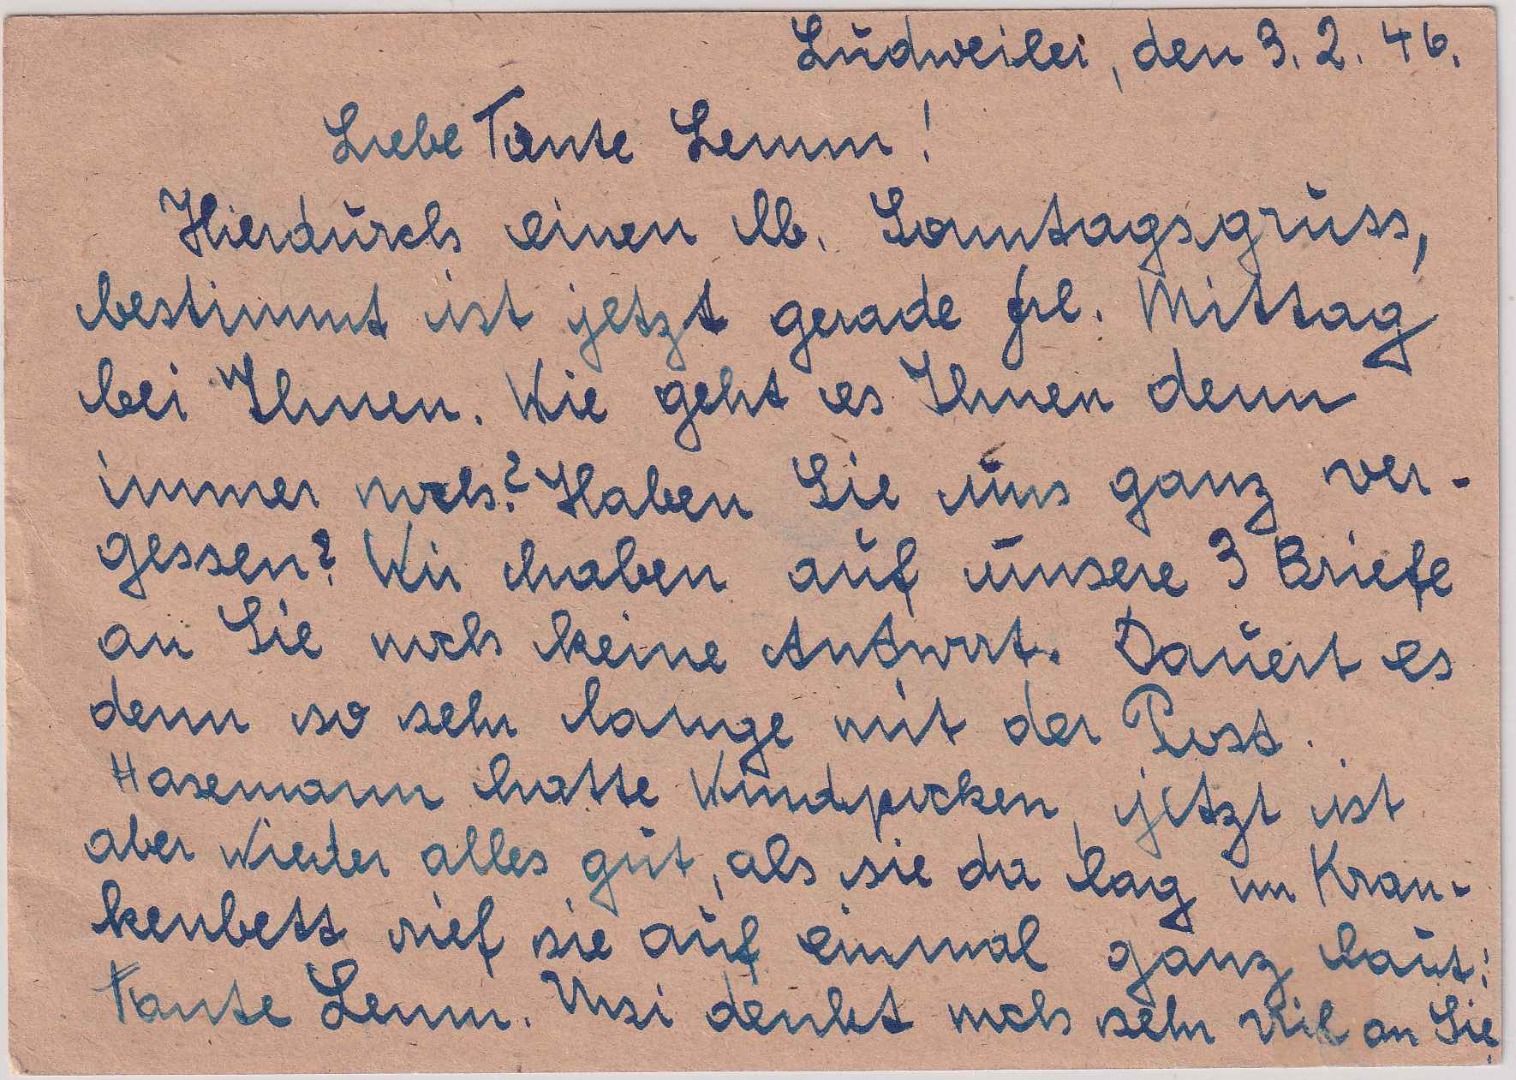 Ludweiler, den 3. 2. 46.
Liebe Tante Lemm!
Hierdurch einen lb. Sonntagsgruss,
bestimmt ist jetzt gerade Frl. Mittag
bei Ihnen. Wie geht es Ihnen denn
immer noch? Haben Sie uns ganz ver-
gessen? Wir haben auf unsere 3 Briefe
an Sie noch keine Antwort. Dauert es
denn so sehr lange mit der Post.
Hasemann hatte Windpocken, jetzt ist
aber wieder alles gut, als sie da lag im Kran-
kenbett rief sie auf einmal ganz laut:
Tante Lemm. denkt noch sehr viel an Sie